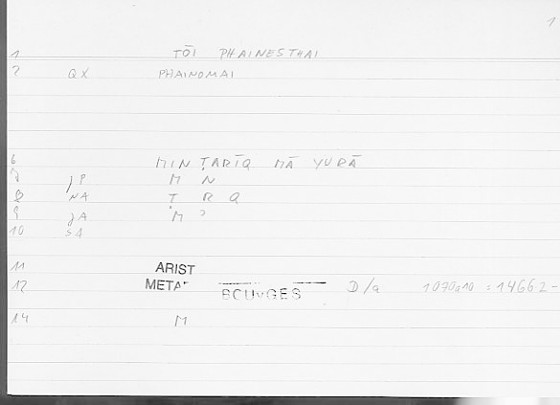 1
1 TŌI PHAINESTHAI
2 QX PHAINOMAI
6 MIN ṬARĪQ MĀ YURĀ
7 jP M N
8 NA Ṭ R Q
9 jA M ʾ
10 SA
11 ARIST
12 METAP BOUYGES D/a 1070a10 : 14662-
14 M